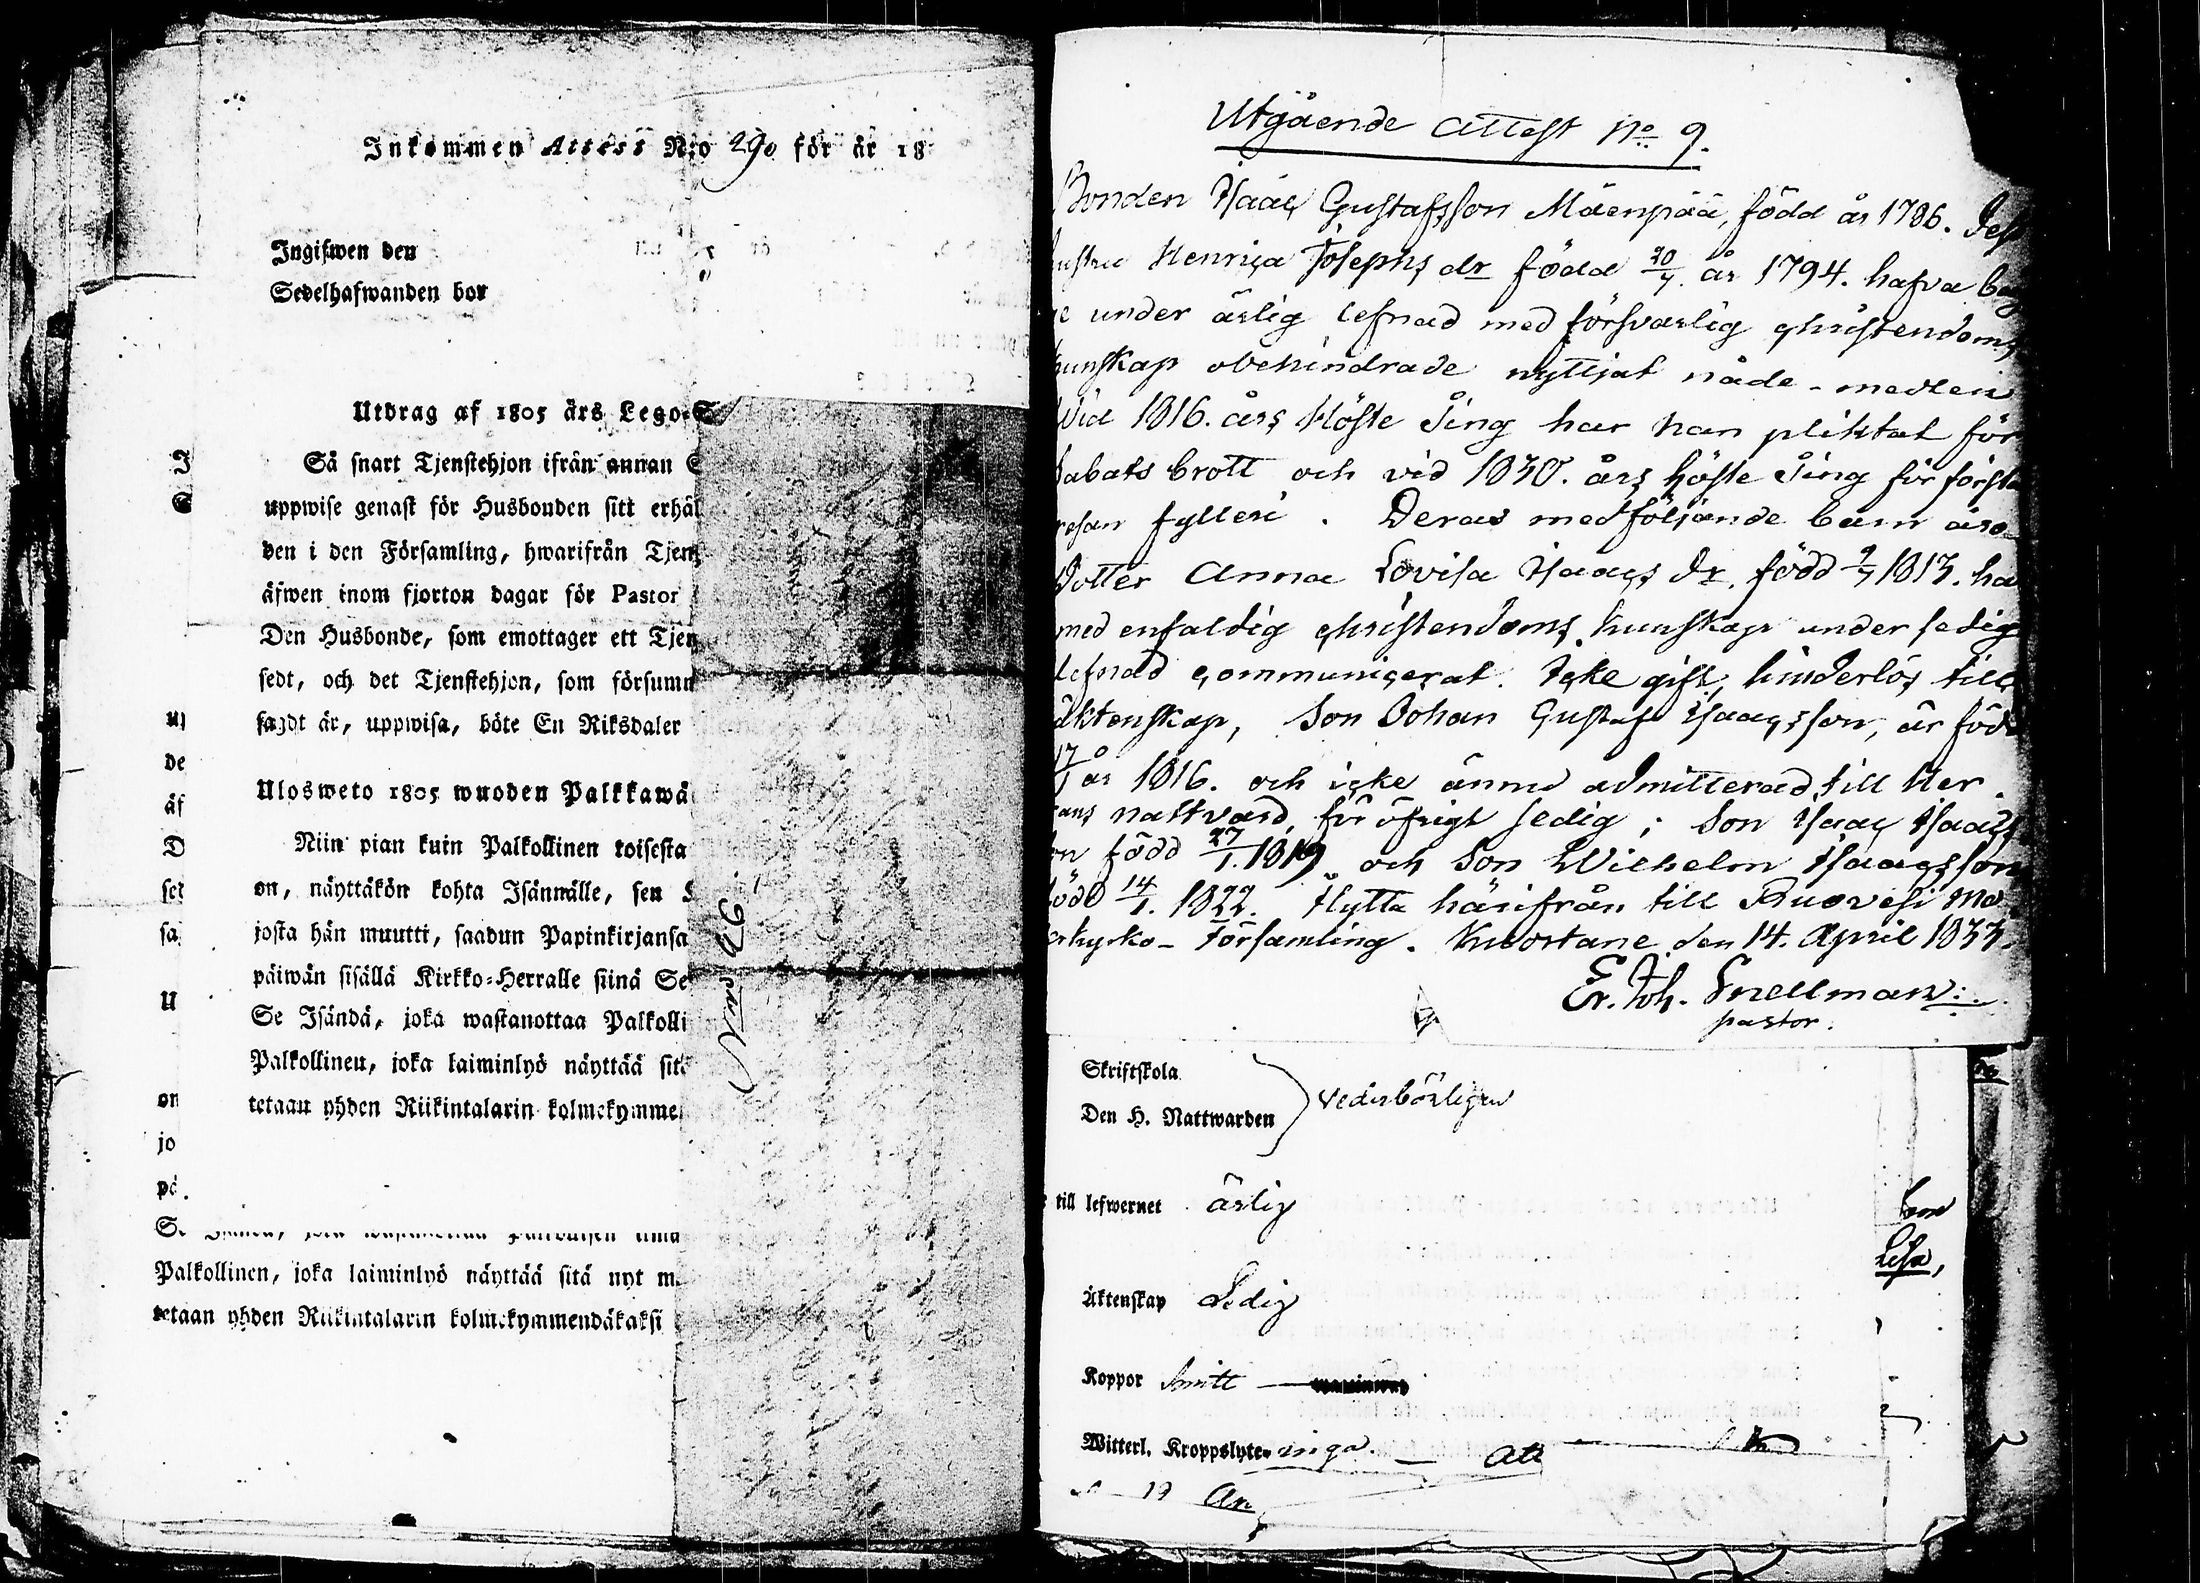 Inkommen Attest N:o 290 för år 18
Ingifwen den
Sedelhafwanden bor
Utdrag af 1805 års Lego-S
Så snart Tjenstehjon ifrån annan
uppwise genast för Husbonden sitt erhål
den i den Församling, hwarifrån Tjen
äfwen inom fjorton dagar för Pastor
Den Husbonde, som emottager ett Tjen
sedt, och det Tjenstehjon, som försumm
sagdt är, uppwisa, böte En Riksdaler
Ulosweto 1805 wuoden Palkkawä
Niin pian kuin Palkollinen toisesta
on, näyttäkön kohta Isännälle, sen
josta hän muutti, saadun Papinkirjansa
päiwän sisällä Kirkko-Herralle siinä Se
Se Isändä, joka wastanottaa Palkolli
Palkollinen, joka laiminlyö näyttää sitä
tetaan yhden Riikintalarin kolmekymme
J
S
up
de
äf
D
sed
sa
U
on
jo
pä
Palkollinen, joka laiminlyö näyttää sitä nyt m
tetaan yhden Riikintalarin kolmekymmendäkaksi
Utgående Attest No 9.
Bonden Isaac Gustafsson Mäenpää, född år 1786. Dess
hustru Henrica Josephs dr född 20/7 år 1794. hafva beg
ge under ärlig lefnad med försvarlig christendoms
kunskap obehindrade nyttjat nåde-medlen
Vid 1816. års Höste Ting har han pliktat för
Sabats brott och vid 1830. års höste Ting för första
resan fylleri. Deras medföljande barn äro
Dotter Anna Lovisa Isaacs dr. född 9/7 1813. ha
med enfaldig christendoms kunskap under sedig
lefnad communicerat. Icke gift, hinderlös till
äktenskap, Son Johan Gustaf Isaacsson, är född
17/1 år 1816. och icke ännu admitterad till Her
rans nattvard, för öfrigt sedig; Son Isaac Isaacs
son född 27/1. 1819 och Son Wilhelm Isaacsson
född 14/1. 1822. Flytta härifrån till Ruovesi Mo
derkyrko-Församling. Kuortane den 14. April 1833.
Er. Joh. Snellman
pastor.
Skriftskola
Den H. Nattwarden vederbörligen
till lefwernet ärlig
Äktenskap Ledig
Koppor Smitt
Witterl. Kroppslyten inga. Att
Lisa,
19 An